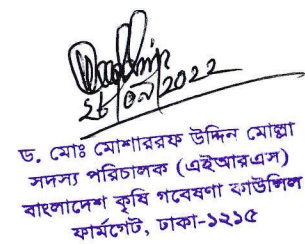 ২৮/০৯/2022
ড. মোঃ মোশাররফ উদ্দিন মোল্লা
সদস্য পরিচালক (এইআরএস)
বাংলাদেশ কৃষি গবেষণা কাউন্সিল
ফার্মগেট, ঢাকা-১২১৫